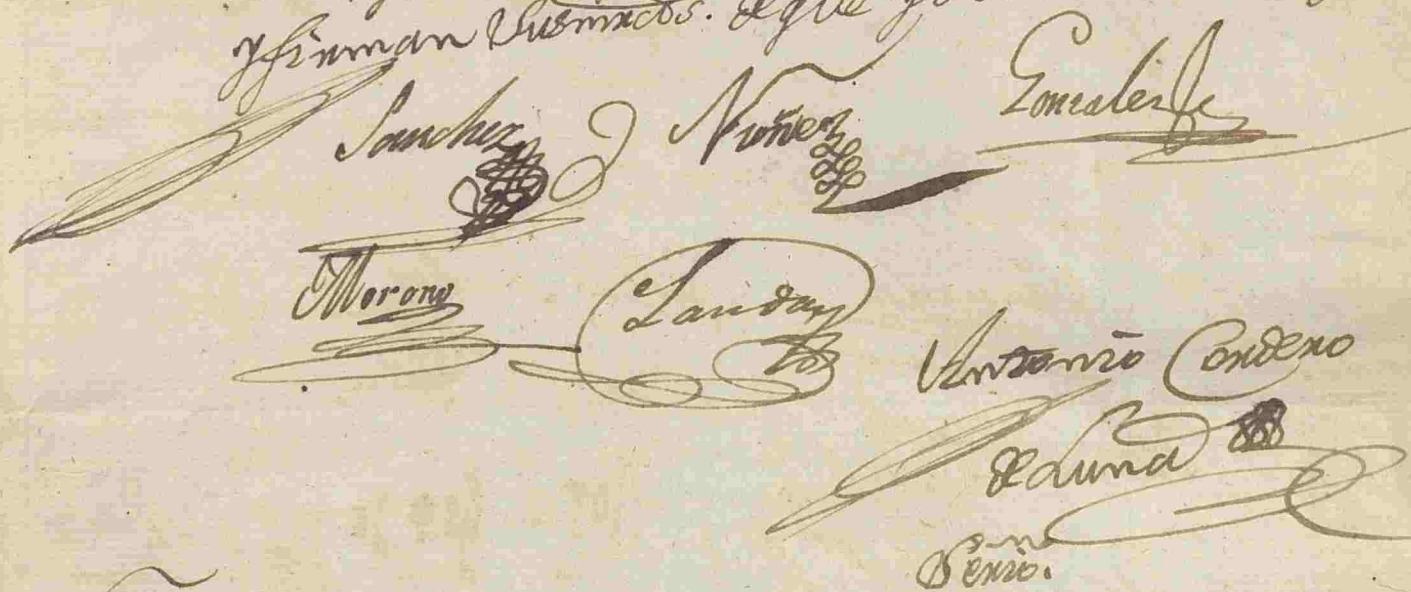 y firman Vusmrds. de que y
Sanchez Nuñez Gonzalez
Moreno Landa
Antonio Cordero
de Luna